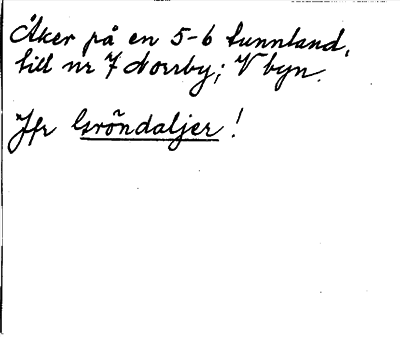 Åker på en 5-6 tunnland,
till nr 7 Norrby; V byn.
Jfr Gröndaljer!